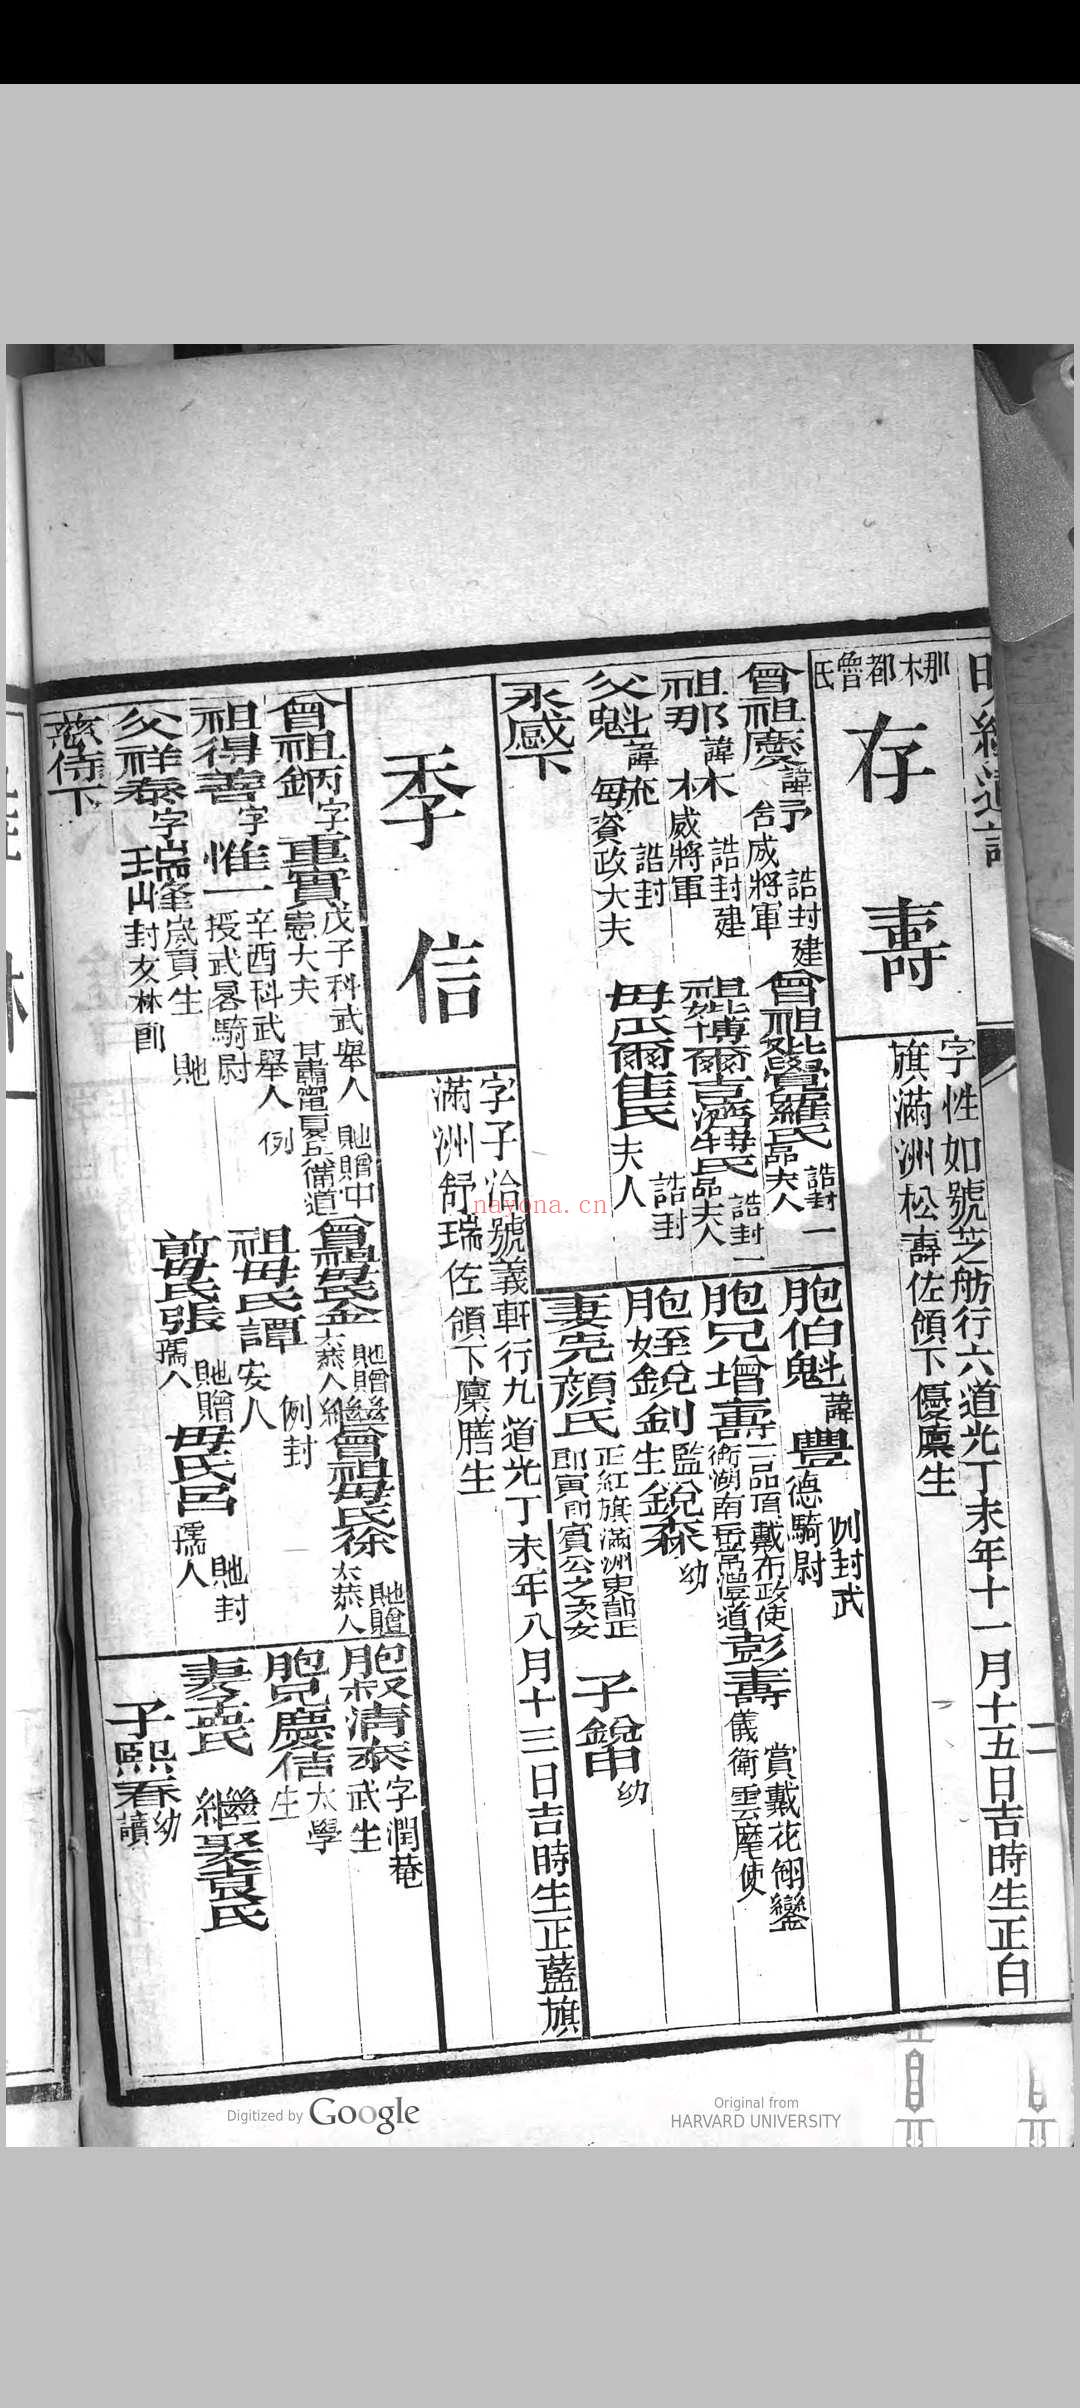 明經通譜
二
那木都魯氏
存壽
字性如號芝舫行六道光丁未年十一月十五日吉時生正白
旗滿洲松壽佐領下優廩生
曾祖慶諱予
誥封建
威將軍
曾祖妣覺羅氏
誥封一
品夫人
祖那諱木
誥封建
威將軍
祖妣博爾吉濟特氏
誥封一
品夫人
父魁諱
誥封
資政大夫
母氏爾佳氏
誥封
夫人
永感下
胞伯魁諱豐
例封武
德騎尉
胞兄增壽
二品頂戴布政使
衛湖南岳常澧道
彭壽
賞戴花翎鑾
儀衛雲麾使
胞姪銳釗
監
生
銳森
幼
妻完顏氏
正紅旗滿洲
公之次女
子銳
幼
季信
字子洽號義軒行九道光丁未年八月十三日吉時生正藍旗
滿洲舒瑞佐領下廩膳生
曾祖鈵字重實
戊子科武舉人
貤贈中
憲大夫
甘肅寧夏兵備道
曾祖母氏金
貤贈
太恭人
繼曾祖母氏徐
貤贈
太恭人
祖得善字惟一
辛酉科武舉人
例
授武畧騎尉
祖母氏譚
例封
安人
父祥泰字瑞峯
歲貢生
貤
封文林郎
前母氏張
貤贈
孺人
母氏呂
貤封
孺人
慈侍下
胞叔清泰
字潤菴
武生
胞兄慶信
太學
生
妻孟氏
繼娶袁氏
子熙春
幼
讀
nayona.cn
Digitized by Google
Original from
HARVARD UNIVERSITY